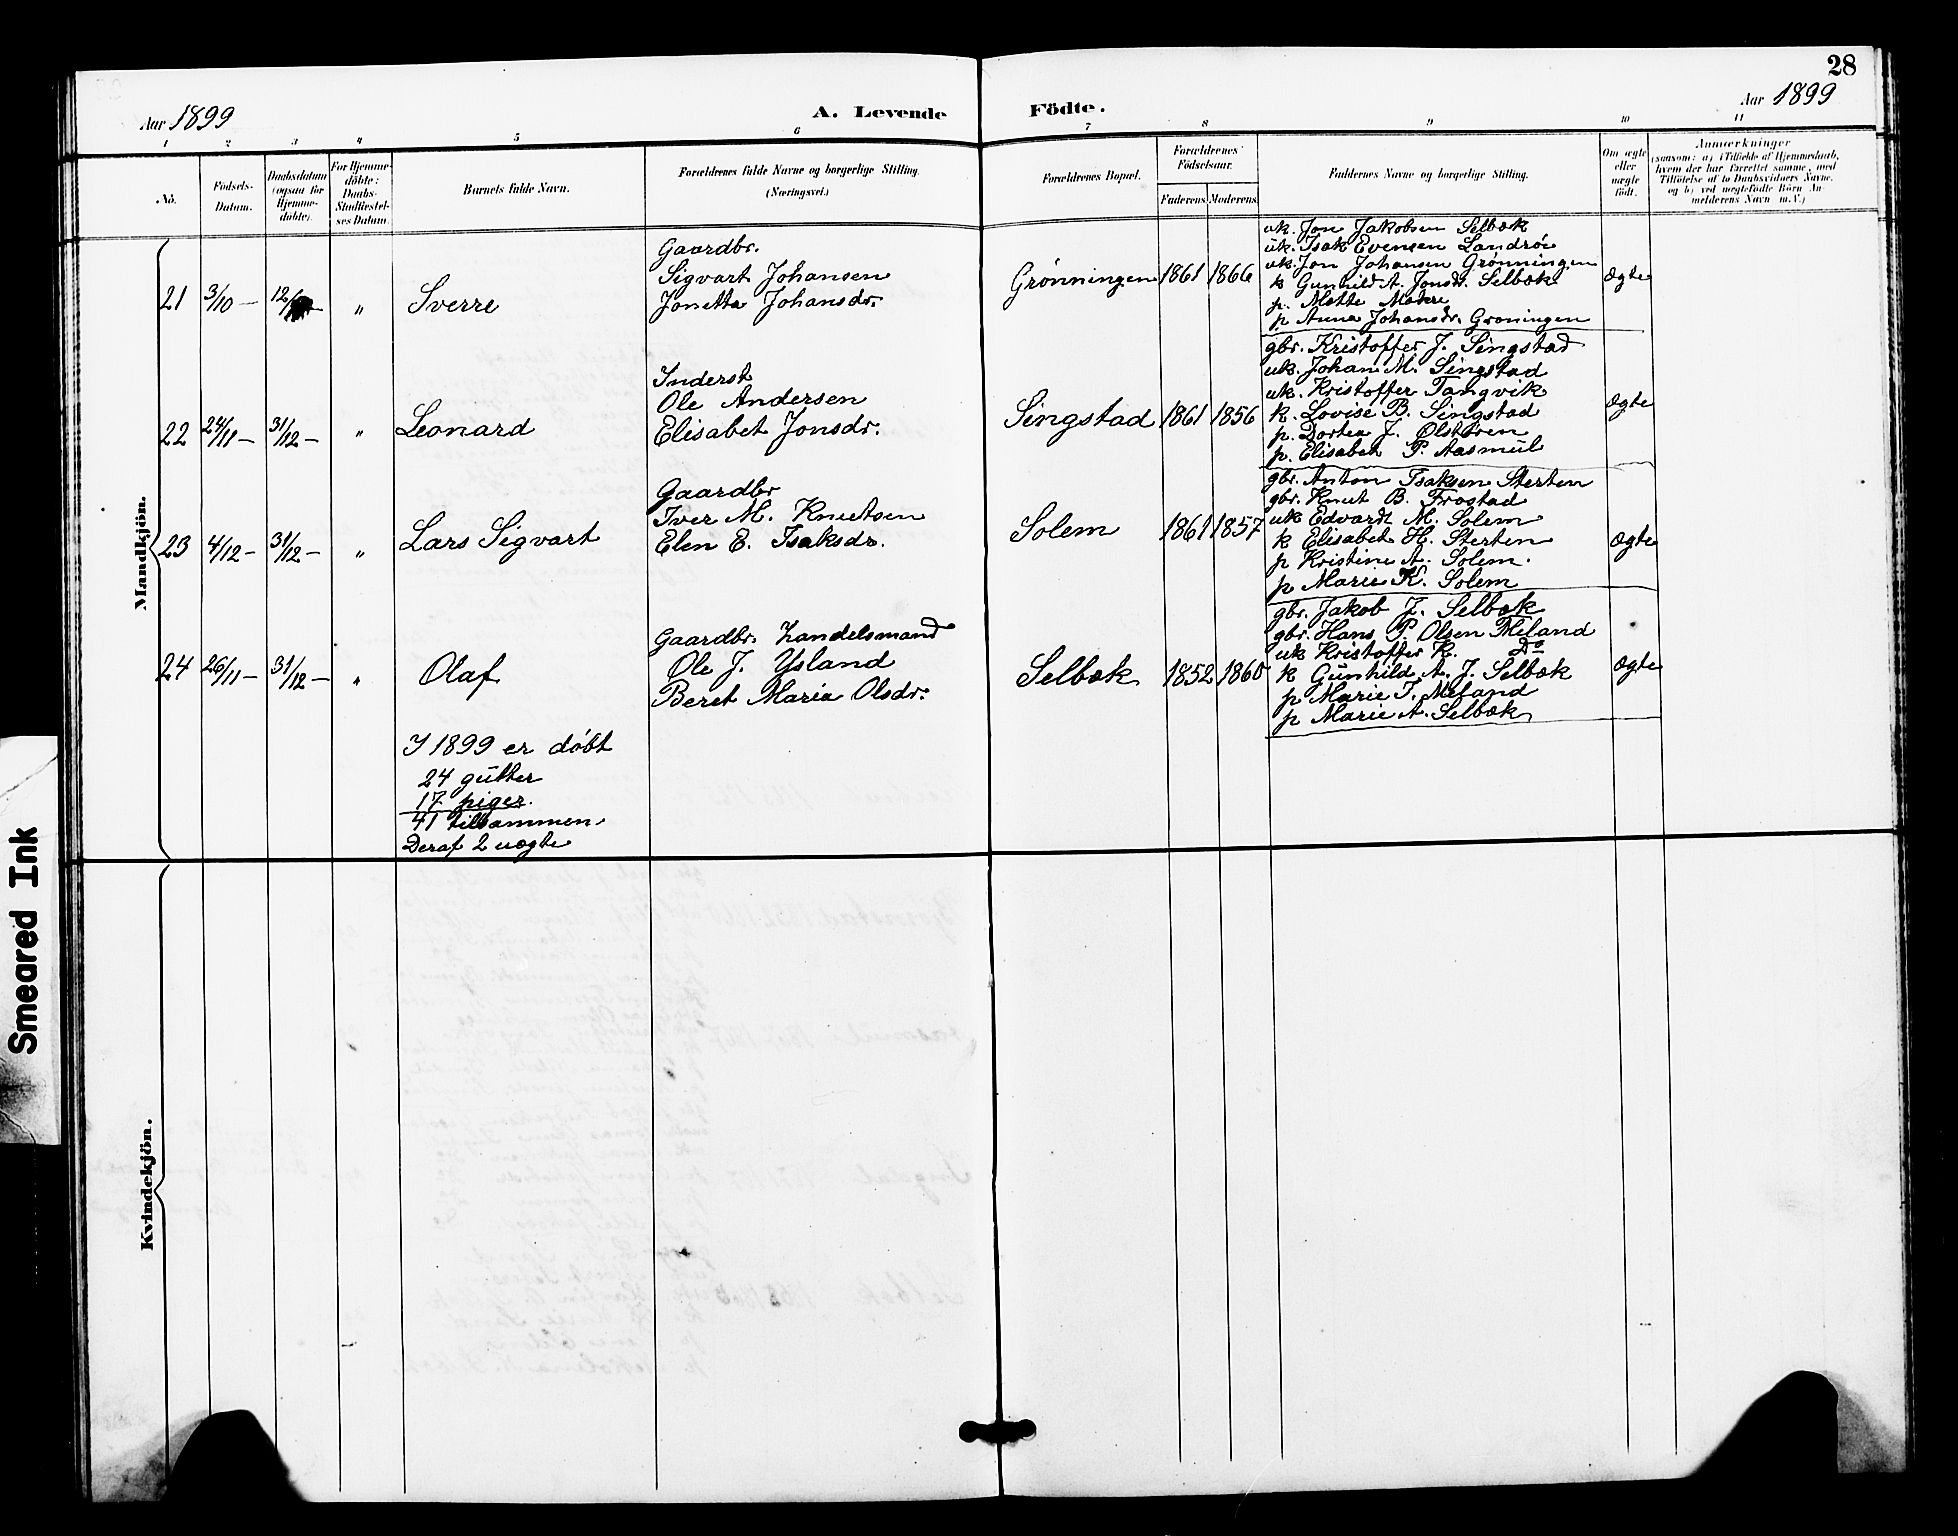 28
Aar 1899
A. Levende Födte.
Aar 1899
1 2 3 4 5 6 7 8 9 10 11
No.
Födsels-
Datum.
Daabsdatum
(ogsaa for
Hjemme-
döbte).
For Hjemme-
döbte:
Daabs-
Stadfæstel-
ses Datum.
Barnets fulde Navn.
Forældrenes fulde Navne og borgerlige Stilling.
(Næringsvei.)
Forældrenes Bopæl.
Forældrenes
Födselsaar.
Faderens. Moderens.
Faddernes Navne og borgerlige Stilling.
Om ægte
eller
uægte
födt.
Anmærkninger
(saasom: a) i Tilfælde af Hjemmedaab,
hvem der har forrettet samme, med
Tilföielse af to Daabsvidners Navne,
og b) ved uægtefödte Börn An-
melderens Navn m. V.)
Mandkjön.
21 3/10 — 12/ — " Sverre
Gaardbr.
Sigvart Johansen
Jonetta Johansdr.
Grønningen 1861 1866
uk. Jon Jakobsen Selbæk
uk. Isak Evensen Landrøe
uk. Jon Johansen Grønningen
k Gunhild A. Jonsdr. Selbæk
p. Mette Modere
p Anna Johansdr. Groningen
Ægte
22 24/11 — 31/12 — " Leonard
Inderst
Ole Andersen
Elisabet Jonsdr.
Singstad 1861 1856
gbr. Kristoffer J. Singstad
uk. Johan M. Singstad
uk. Kristoffer Tangvik
k. Lovise B. Singstad
p. Dortea J. Ølstøren
p. Elisabet P. Aasmul
Ægte
23 4/12 — 31/12 — " Lars Sigvart
Gaardbr
Iver M. Knutsen
Elen E. Isaksdr.
Solem 1861 1857
gbr. Anton Isaksen Sterten
gbr. Knut B. Frostad
uk Edvardt M. Solem
k Elisabet H. Sterten
p Kristine A. Solem.
p Marie K. Solem
Ægte
24 26/11 — 31/12 — " Olaf
Gaardbr. Handelsmand
Ole J. Ysland
Beret Maria Olsdr.
Selbæk 1852 1860
gbr. Jakob J. Selbæk
gbr. Hans P. Olsen Meland
uk Kristoffer K. Do
k Gunhild A. J. Selbæk
p Marie J. Meland
p Marie A. Selbæk
Ægte
I 1899 er døbt
24 gutter
17 piger.
41 tilsammen.
Deraf 2 uægte
Kvindekjön.
Smeared Ink